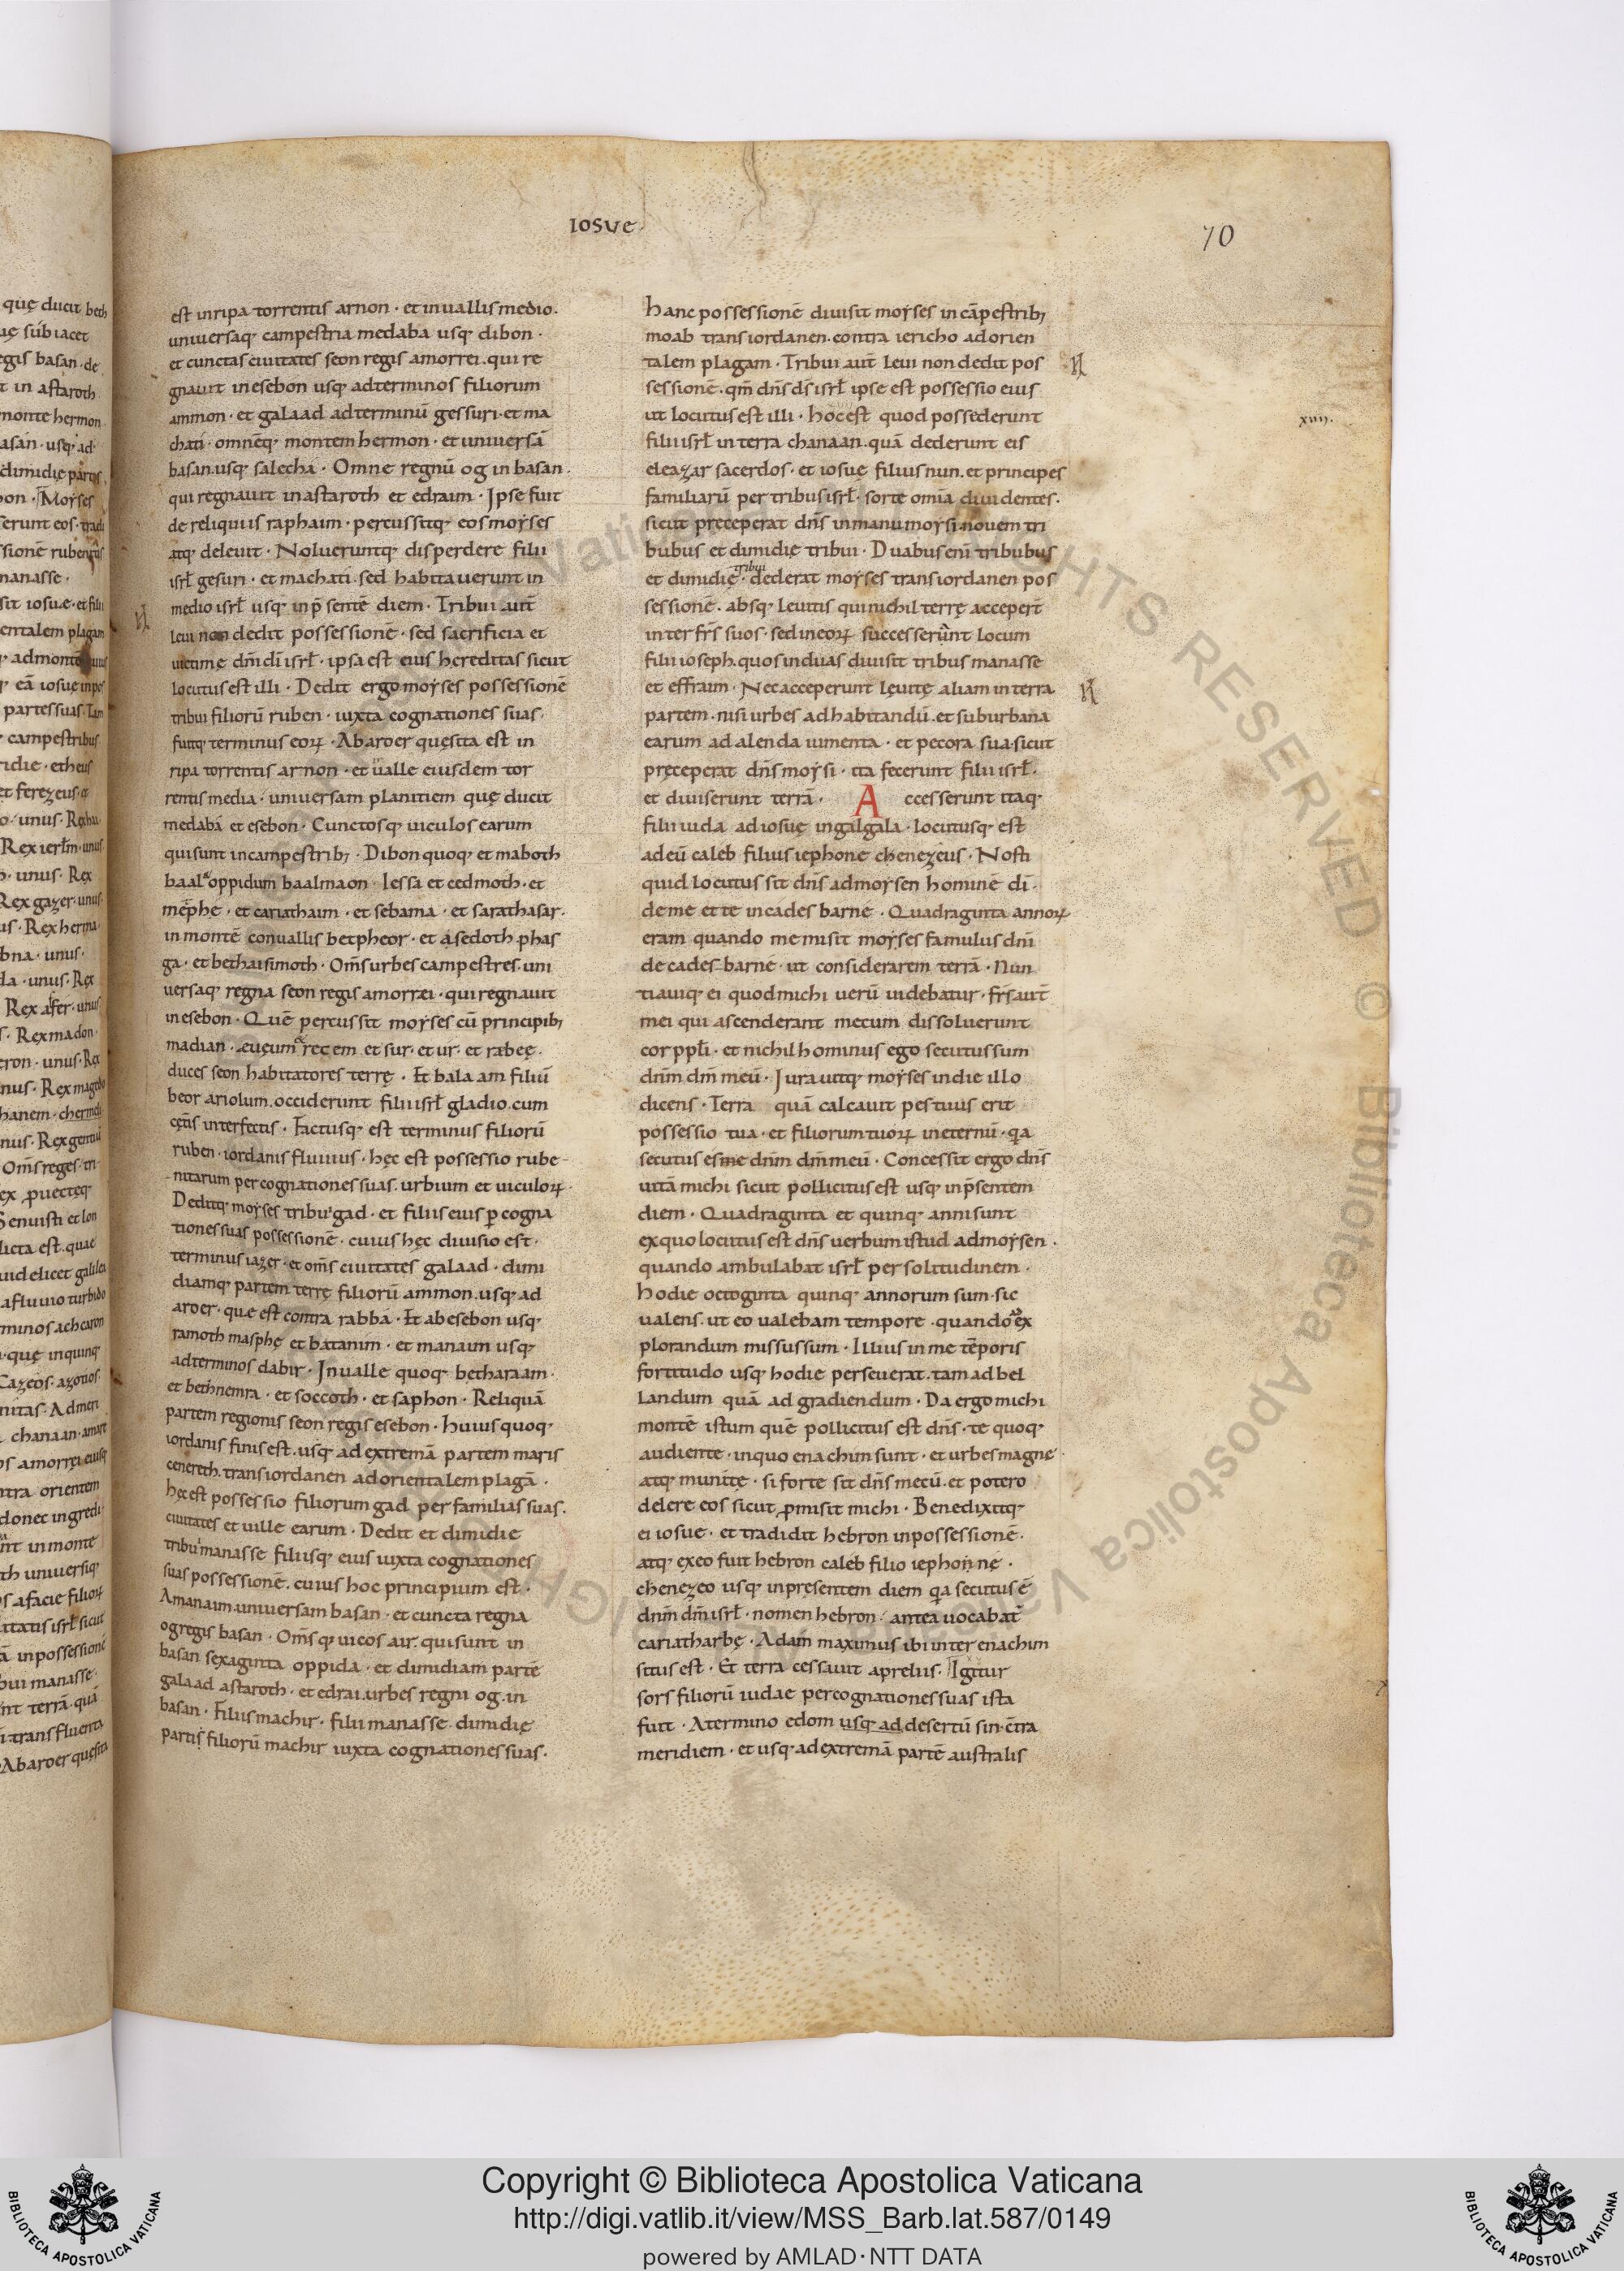 IOSVE
70
est inripa torrentis arnon · et inuallis medio.
uniuersaq; campestria medaba usq; dibon ·
et cunctas ciuitates seon regis amorrei. qui re
gnauit inesebon usq; adterminos filiorum
ammon · et galaad adterminū gessuri · et ma
chati · omnēq; montem hermon · et uniuersā
basan. usq; salecha · Omne regnū og in basan.
qui regnauit inastaroth et edraim · Ipse fuit
de reliquiis raphaim · percussitq; eos moyses
atq; deleuit · Nolueruntq; disperdere filii
isrł gesuri · et machati. sed habitauerunt in
medio isrł usq; inp̄sentē diem · Tribui aut̄
leui non dedit possessionē · sed sacrificia et
uictimę dn̄i di isrł · ipsa est eius hereditas sicut
locutus est illi · Dedit ergo moyses possessionē
tribui filiorū ruben · iuxta cognationes suas ·
fuitq; terminus eoꝝ · Abaroer quęsita est in
ripa torrentis arnon · et ualle eiusdem tor
rentis media · uniuersam planitiem quę ducit
medabā et esebon · Cunctosq; uiculos earum
qui sunt incampestrib; · Dibon quoq; et maboth
baal oppidum baalmaon · Iessa et cedmoth · et
mephe · et cariathaim · et sebama · et sarathasar ·
in montē conuallis betpheor · et asedoth phas
ga · et bethaisimoth · Om̄s urbes campestres. uni
uersaq; regna seon regis amorrei · qui regnauit
in esebon · Quē percussit moyses cū principib;
madian · euęum recem et sur · et ur · et rabeę ·
duces seon habitatores terrę · Et balaam filiū
beor ariolum. occiderunt filii isrł gladio. cum
cęt̄is interfectis · Factusq; est terminus filiorū
ruben · iordanis fluuius · hęc est possessio rube
nitarum per cognationes suas. urbium et uiculoꝝ ·
Deditq; moyses tribui gad · et filiis eius ꝑ cogna
tiones suas possessionē · cuius hęc diuisio est ·
terminus iazer · et om̄s ciuitates galaad · dimi
diamq; partem terrę filiorū ammon. usq; ad
aroer · que est contra rabba · Et ab esebon usq;
ramoth masphę et batanim · et manaim usq;
adterminos dabir · Inualle quoq; betharaam ·
et bethnemra · et soccoth · et saphon · Reliquā
partem regionis seon regis esebon · huius quoq;
iordanis finis est. usq; ad extremā partem maris
cenereth. transiordanen ad orientalem plagā ·
hęc est possessio filiorum gad per familias suas.
ciuitates et uille earum · Dedit et dimidię
tribui manasse filiisq; eius iuxta cognationes
suas possessionē. cuius hoc principium est ·
Amanaim. uniuersam basan · et cuncta regna
og regis basan · Om̄sq; uicos air. qui sunt in
basan sexaginta oppida · et dimidiam partē
galaad astaroth · et edrai. urbes regni og. in
basan · Filiis machir · filii manasse dimidię
partis filiorū machir iuxta cognationes suas.
hanc possessionē diuisit moyses in cāpestrib;
moab transiordanen. contra iericho adorien
talem plagam · Tribui aut̄ leui non dedit pos
sessionē · qm̄ dn̄s ds isrł ipse est possessio eius
ut locutus est illi · hoc est quod possederunt
xiiii.
filii isrł in terra chanaan. quā dederunt eis
eleazar sacerdos · et iosuę filius nun. et principes
familiarū per tribus isrł · sorte omīa diuidentes.
sicut pręceperat dn̄s inmanu moysi. nouem tri
bubus et dimidię tribui · Duabus enī tribubus
et dimidię tribui · dederat moyses transiordanen pos
sessionē. absq; leuitis qui nichil terrę acceper̄t
inter frs̄ suos · sed ineoꝝ successerunt locum
filii ioseph. quos induas diuisit tribus manasse
et effraim · Nec acceperunt leuitę aliam in terra
partem. nisi urbes ad habitandū. et suburbana
earum ad alenda iumenta · et pecora sua. sicut
pręceperat dn̄s moysi · ita fecerunt filii isrł.
et diuiserunt terrā · Accesserunt itaq;
filii iuda ad iosuę ingalgala · locutusq; est
adeū caleb filius iephone chenezeus · Nosti
quid locutus sit dn̄s ad moysen hominē dī ·
de me et te incades barne · Quadraginta annoꝝ
eram quando me misit moyses famulus dn̄i
de cades barne · ut considerarem terrā · Nun
tiauiq; ei quod michi uerū uidebatur · frs̄ aut̄
mei qui ascenderant mecum dissoluerunt
cor ppłi · et nichilhominus ego secutus sum
dn̄m dm̄ meū · Iurauitq; moyses indie illo
dicens · Terra quā calcauit pes tuus erit
possessio tua · et filiorum tuoꝝ ineternū · q̄a
secutus es me dn̄m dm̄ meū · Concessit ergo dn̄s
uitā michi sicut pollicitus est usq; inp̄sentem
diem · Quadraginta et quinq; anni sunt
exquo locutus est dn̄s uerbum istud ad moysen.
quando ambulabat isrł per solitudinem ·
hodie octoginta quinq; annorum sum · sic
ualens. ut eo ualebam tempore · quando ex
plorandum missus sum · Illius in me tēporis
fortitudo usq; hodie perseuerat. tam ad bel
landum quā ad gradiendum · Da ergo michi
montē istum quē pollicitus est dn̄s · te quoq;
audiente · inquo enachim sunt · et urbes magnę ·
atq; munitę · si forte sit dn̄s mecū. et potero
delere eos sicut ꝓmisit michi · Benedixitq;
ei iosue · et tradidit hebron inpossessionē ·
atq; exeo fuit hebron caleb filio iephonne ·
chenezeo usq; inpresentem diem q̄a secutus ē
dn̄m dm̄ isrł · nomen hebron antea uocabat̄
cariatharbę · Adam maximus ibi inter enachim
situs est · Et terra cessauit aprelius. Igitur
sors filiorū iudae per cognationes suas ista
fuit · Atermino edom usq; ad desertū sin · cōtra
meridiem · et usq; ad extremā partē australis
Copyright © Biblioteca Apostolica Vaticana
http://digi.vatlib.it/view/MSS_Barb.lat.587/0149
powered by AMLAD·NTT DATA
BIBLIOTECA APOSTOLICA VATICANA
BIBLIOTECA APOSTOLICA VATICANA